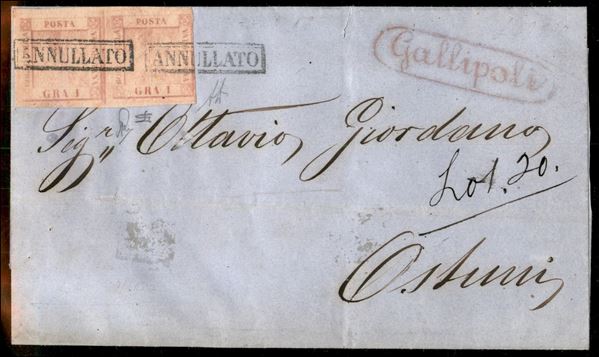 POSTA POSTA
ANNULLATO ANNULLATO
GRA 1 GRA 1
Gallipoli
Sig.r Ottavio Giordano
Lot. 20.
Ostuni